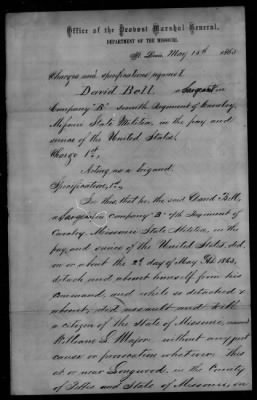 Office of the Provost Marshal General,
DEPARTMENT OF THE MISSOURI.
St. Louis, May 15th 1863
Charges and specifications against
David Boll a Sergeant in
Company "B" seventh Regiment of Cavalry
Missouri State Militia, in the pay and
service of the United States,
Charge 1st,
Acting as a brigand.
Specification, 1st,
In this, that he, the said David Boll,
a Sergeant in company "B" 7th Regiment of
Cavalry Missouri State Militia, in the
pay, and service of the United States, did,
on or about the 2d day of May 1863,
detach and absent himself from his
command, and while so detached &
absent, did assault and
a citizen of the State of Missouri, named
William L. Major without any just
cause or provocation whatever. This
at or near Longwood, in the County
of Pettis and State of Missouri, on